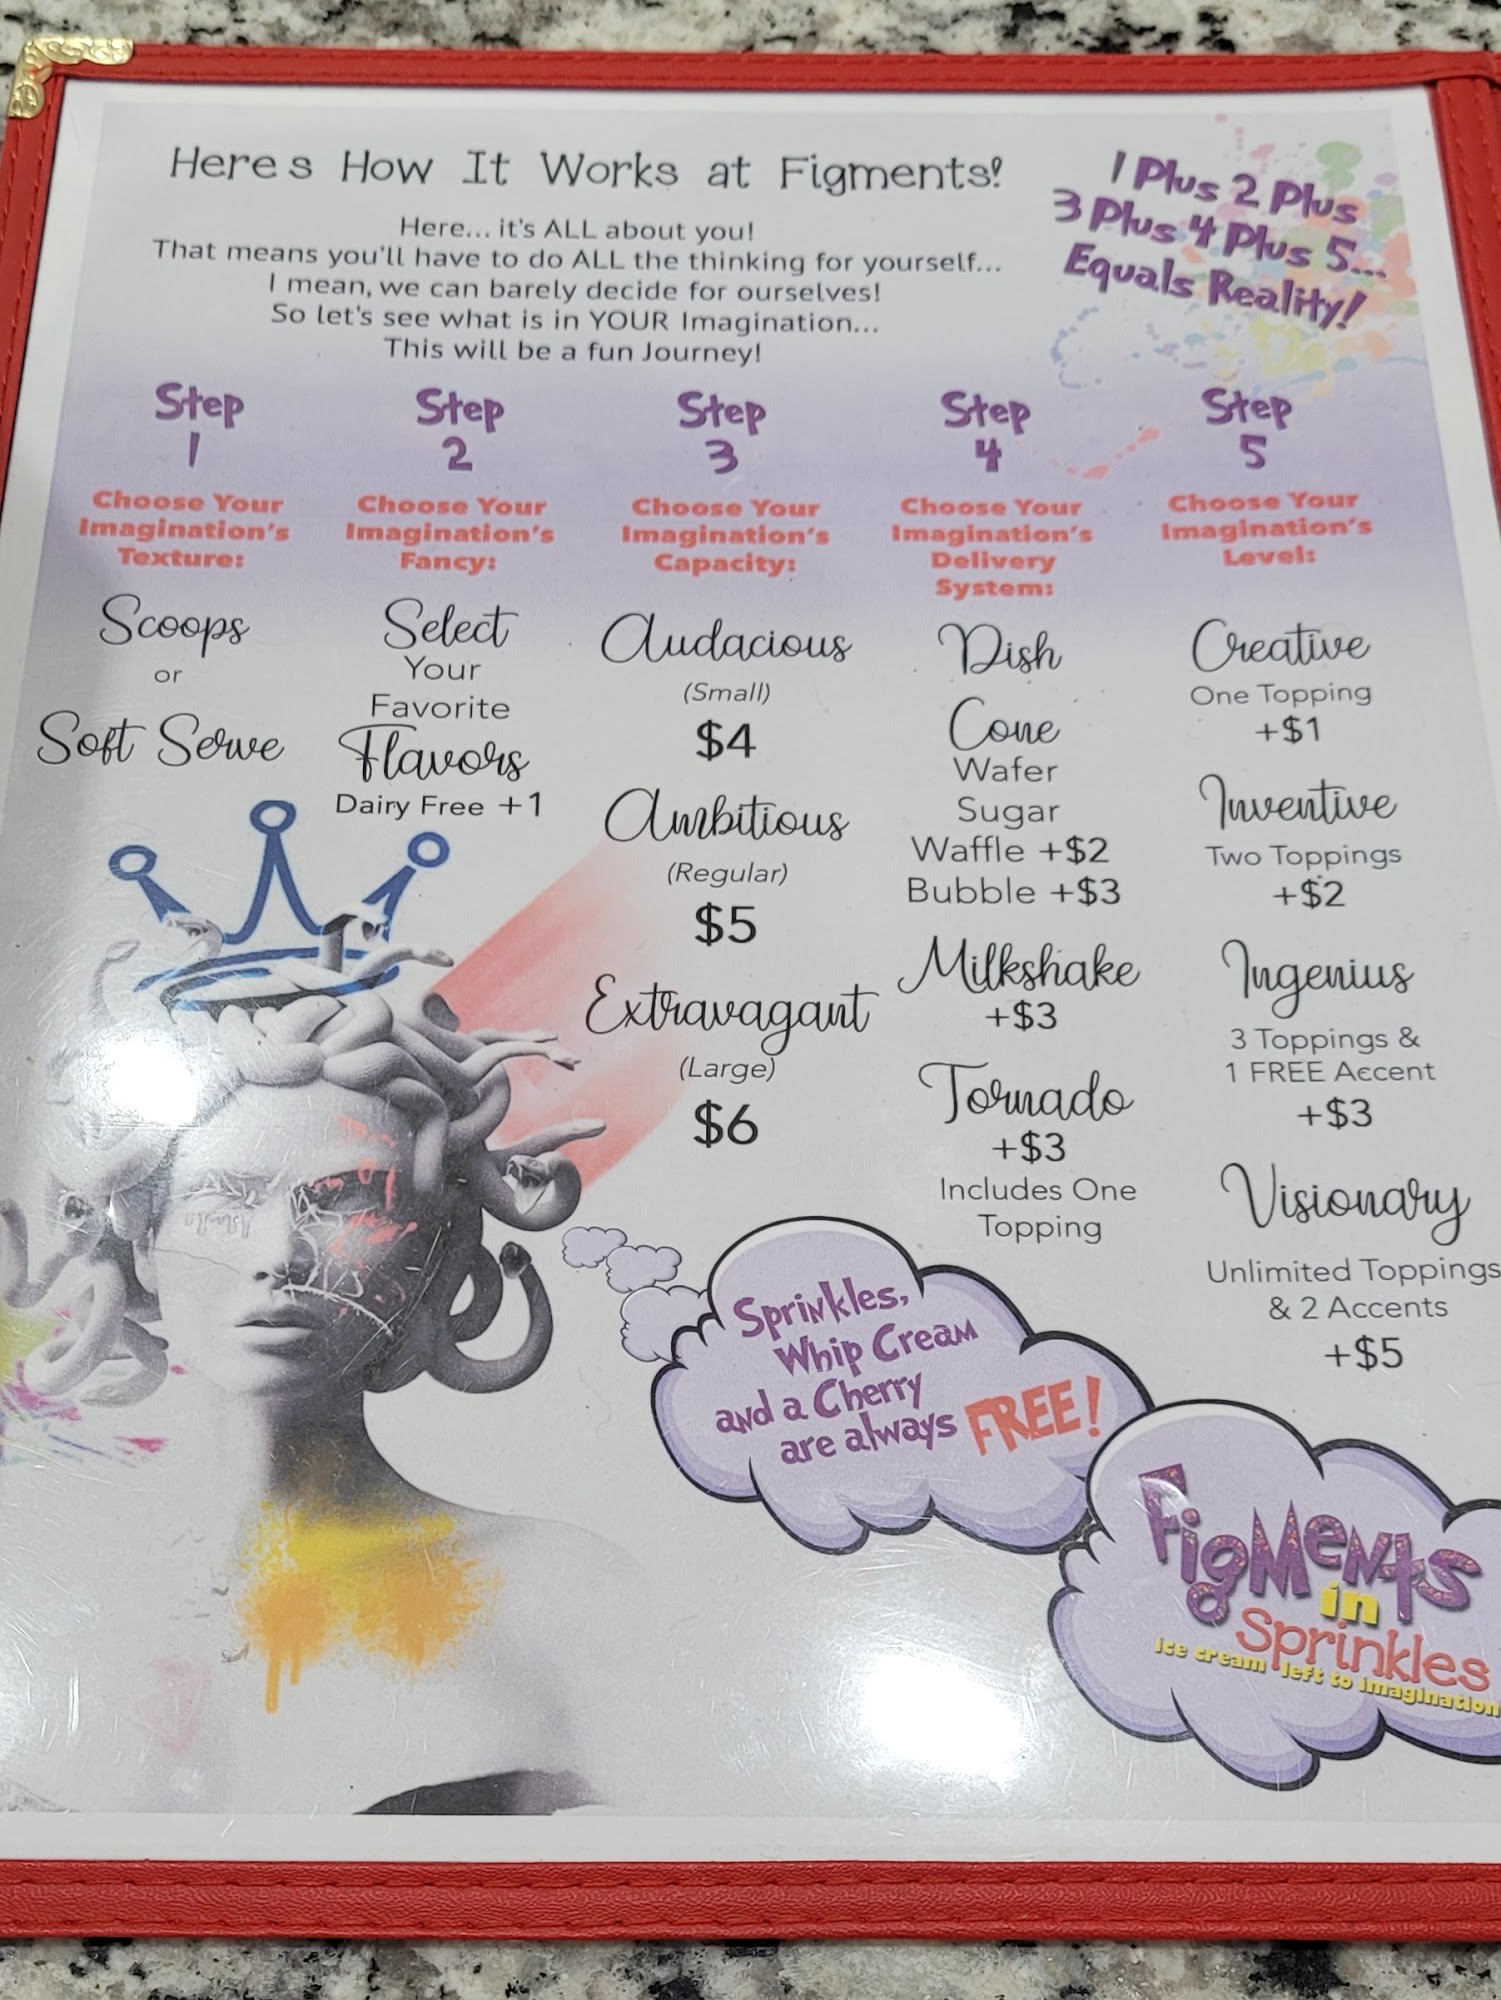 Here s How It Works at Figments!
Here... it's ALL about you!
That means you'll have to do ALL the thinking for yourself...
I mean, we can barely decide for ourselves!
So let's see what is in YOUR Imagination...
This will be a fun Journey!
1 Plus 2 Plus
3 Plus 4 Plus 5...
Equals Reality!
Step
1
Choose Your
Imagination's
Texture:
Scoops
or
Soft Serve
Step
2
Choose Your
Imagination's
Fancy:
Select
Your
Favorite
Flavors
Dairy Free +1
Step
3
Choose Your
Imagination's
Capacity:
Audacious
(Small)
$4
Ambitious
(Regular)
$5
Extravagant
(Large)
$6
Step
4
Choose Your
Imagination's
Delivery
System:
Dish
Cone
Wafer
Sugar
Waffle +$2
Bubble +$3
Milkshake
+$3
Tornado
+$3
Includes One
Topping
Step
5
Choose Your
Imagination's
Level:
Creative
One Topping
+$1
Inventive
Two Toppings
+$2
Ingenius
3 Toppings &
1 FREE Accent
+$3
Visionary
Unlimited Toppings
& 2 Accents
+$5
Sprinkles,
Whip Cream
and a Cherry
are always FREE!
Figments
in
Sprinkles
ice cream left to imagination